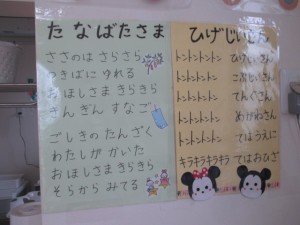 たなばたさま
ささのは さらさら
のきばに ゆれる
おほしさま きらきら
きん ぎん すなご
ごしきの たんざく
わたしが かいた
おほしさま きらきら
そらから みてる
ひげじいさん
トントントントン ひげじいさん
トントントントン こぶじいさん
トントントントン てんぐさん
トントントントン めがねさん
トントントントン てはうえに
キラキラキラキラ てはおひざ